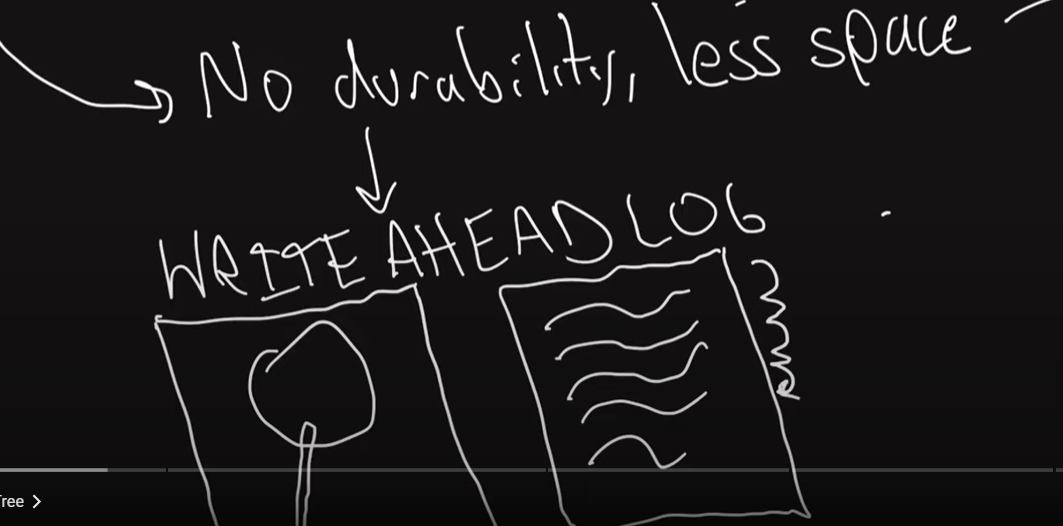 No durability, less space
WRITE AHEAD LOG
ree